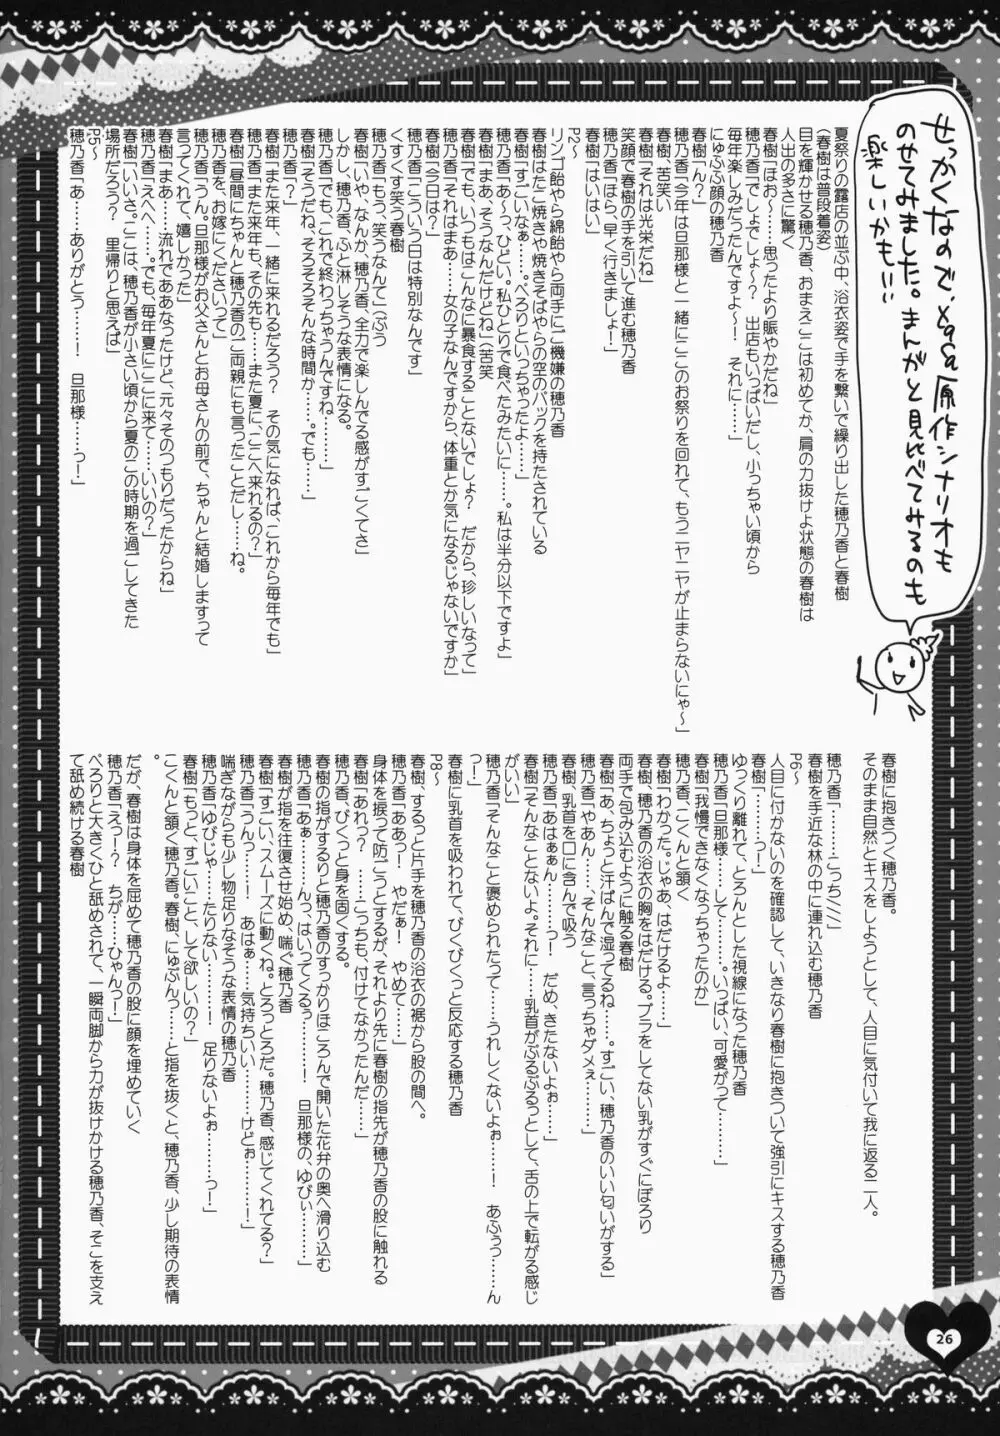 せっかくなので、xqsq原作シナリオも
のせてみました。まんがと見比べてみるのも
楽しいかも!!
夏祭りの露店の並ぶ中、浴衣姿で手を繋いで繰り出した穂乃香と春樹
(春樹は普段着姿)
目を輝かせる穂乃香、おまえここは初めてか、肩の力抜けよ状態の春樹は
人出の多さに驚く
春樹「ほお〜……思ったより賑やかだね」
穂乃香「でしょでしょ〜?　出店もいっぱいだし、小っちゃい頃から
毎年楽しみだったんですよ〜!　それに……」
にゅふふ顔の穂乃香
春樹「ん?」
穂乃香「今年は旦那様と一緒にここのお祭りを回れて、もうニヤニヤが止まらないにゃ〜」
春樹、苦笑い
春樹「それは光栄だね」
笑顔で春樹の手を引いて進む穂乃香
穂乃香「ほら、早く行きましょ!」
春樹「はいはい」
P2〜
リンゴ飴やら綿飴やら両手にご機嫌の穂乃香
春樹はたこ焼きや焼きそばやらの空のパックを持たされている
春樹「すごいなぁ……ぺろりといっちゃったよ……」
穂乃香「あ〜っ、ひどい。私ひとりで食べたみたいに……。私は半分以下ですよ」
春樹「まあ、そうなんだけどね」苦笑
春樹「でも、いつもはこんなに暴食することないでしょ?　だから、珍しいなって」
穂乃香「それはまあ……女の子なんですから、体重とか気になるじゃないですか」
春樹「今日は?」
穂乃香「こういう日は特別なんです」
くすくす笑う春樹
穂乃香「もう、笑うなんて」(ぷう
春樹「いや、なんか、穂乃香、全力で楽しんでる感がすごくてさ」
しかし、穂乃香、ふと淋しそうな表情になる。
穂乃香「でも、これで終わっちゃうんですね………」
春樹「そうだね、そろそろそんな時間か……。でも……」
穂乃香「?」
春樹「また来年、一緒に来れるだろう?　その気になれば、これから毎年でも」
穂乃香「また来年も、その先も……また夏に、ここへ来れるの?」
春樹「昼間にちゃんと穂乃香のご両親にも言ったことだし……ね。
穂乃香を、お嫁にくださいって」
穂乃香「うん。旦那様がお父さんとお母さんの前で、ちゃんと結婚しますって
言ってくれて、嬉しかった」
春樹「まあ、流れでああなったけど、元々そのつもりだったからね」
穂乃香「えへへ……。でも、毎年夏にここに来て……いいの?」
春樹「いいさ。ここは、穂乃香が小さい頃から夏のこの時期を過ごしてきた
場所だろう?　里帰りと思えば」
P5〜
穂乃香「あ……ありがとう……!　旦那様……っ!」
春樹に抱きつく穂乃香。
そのまま自然とキスをしようとして、人目に気付いて我に返る二人。
穂乃香「………こっち///」
春樹を手近な林の中に連れ込む穂乃香
P6〜
人目に付かないのを確認して、いきなり春樹に抱きついて強引にキスする穂乃香
春樹「………っ!」
ゆっくり離れて、とろんとした視線になった穂乃香
穂乃香「旦那様……して……。いっぱい、可愛がって……」
春樹「我慢できなくなっちゃったのか」
穂乃香、こくんと頷く
春樹「わかった。じゃあ、はだけるよ……」
春樹、穂乃香の浴衣の胸をはだける。ブラをしてない乳がすぐにぽろり
両手で包み込むように触る春樹
春樹「あ、ちょっと汗ばんで湿ってるね……。すごい、穂乃香のいい匂いがする」
穂乃香「やあん……そんなこと、言っちゃダメぇ……」
春樹、乳首を口に含んで吸う
穂乃香「あはぁぁん……っ!　だめ、きたないよぉ……」
春樹「そんなことないよ。それに……乳首がぷるぷるっとして、舌の上で転がる感じ
がいい」
穂乃香「そんなこと褒められたって……うれしくないよぉ……!　あふぅっ……ん
っ!」
春樹に乳首を吸われて、びくびくっと反応する穂乃香
P8〜
春樹、するっと片手を穂乃香の浴衣の裾から股の間へ。
穂乃香「ああっ!　やだぁ!　やめて……」
身体を捩って防ごうとするが、それより先に春樹の指先が穂乃香の股に触れる
春樹「あれっ?　……こっちも、付けてなかったんだ……」
穂乃香、びくっと身を固くする。
春樹の指がするりと穂乃香のすっかりほころんで開いた花弁の奥へ滑り込む
穂乃香「あぁ………んっ、はいってくるぅ………!　旦那様の、ゆびぃ………」
春樹が指を往復させ始め、喘ぐ穂乃香
春樹「すごい、スムーズに動くね。とろっとろだ。穂乃香、感じてくれてる?」
穂乃香「うんっ……!　あはぁ……気持ちいい………けどぉ………!」
喘ぎながらも少し物足りなそうな表情の穂乃香
穂乃香「ゆびじゃ……たりない………!　足りないよぉ……っ!」
春樹「もっと、すごいこと、して欲しいの?」
こくんと頷く穂乃香。春樹、にゅぷんっ……と指を抜くと、穂乃香、少し期待の表情
。
だが、春樹は身体を屈めて穂乃香の股に顔を埋めていく
穂乃香「えっ!?　ちが……ひゃんっ!」
ぺろりと大きくひと舐めされて、一瞬両脚から力が抜けかける穂乃香、そこを支え
て舐め続ける春樹
26